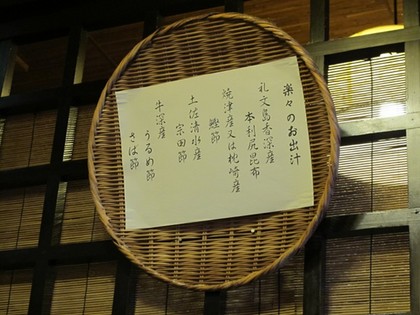 楽々のお出汁
礼文島香深産
本利尻昆布
焼津産又は枕崎産
鰹節
土佐清水産
宗田節
牛深産
うるめ節
さば節